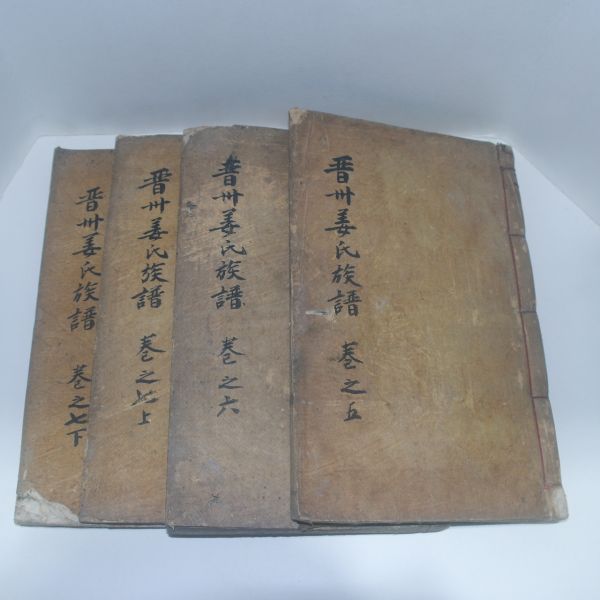 晋州姜氏族譜 卷之五
晋州姜氏族譜 卷之六
晋州姜氏族譜 卷之七上
晋州姜氏族譜 卷之七下